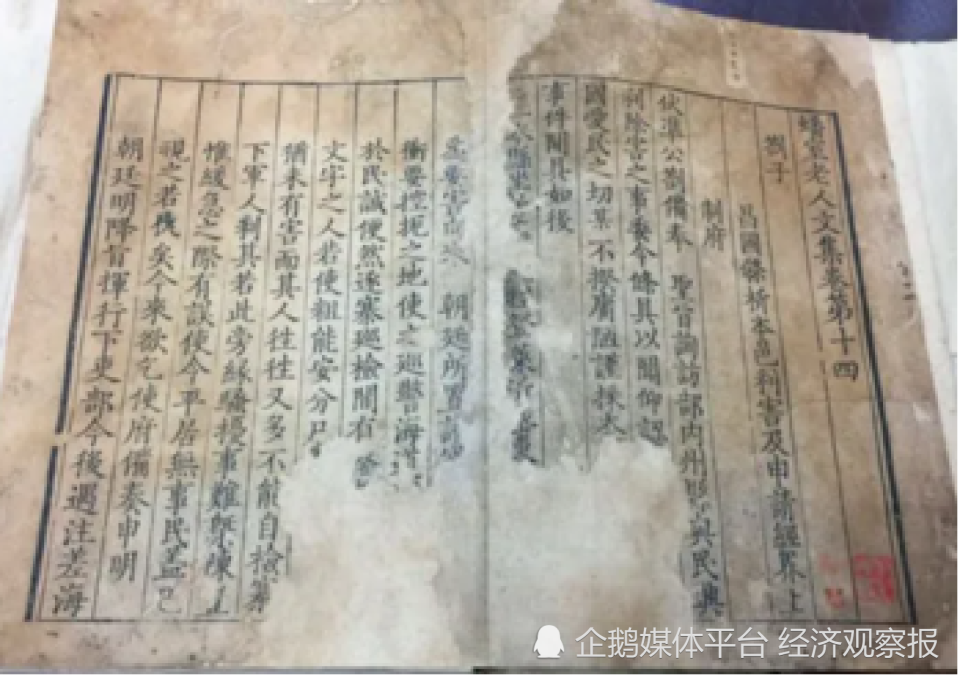 蟠室老人文集卷第十四
劄子
昌國條析本邑利害及申請經界上
制府
伏準公劄備奉 聖旨詢訪部內州縣與民興
利除害之事委令條具以聞仰認
國愛民之切某不揆膚陋謹採大
事件開具如後
要害 朝廷所置
衝要控扼之地使之巡警海
於民誠便然逐塞巡檢間有
文字之人若使粗能安分
猶未有害而其人往往又多不能自撿
下軍人利其若此旁緣騷擾事難槩陳
惟緩急之際有誤使令平居無事民盖已
視之若殘矣今來欲乞使府備奏申明
朝廷明降旨揮行下吏部今後遇注差海
企鹅媒体平台 经济观察报